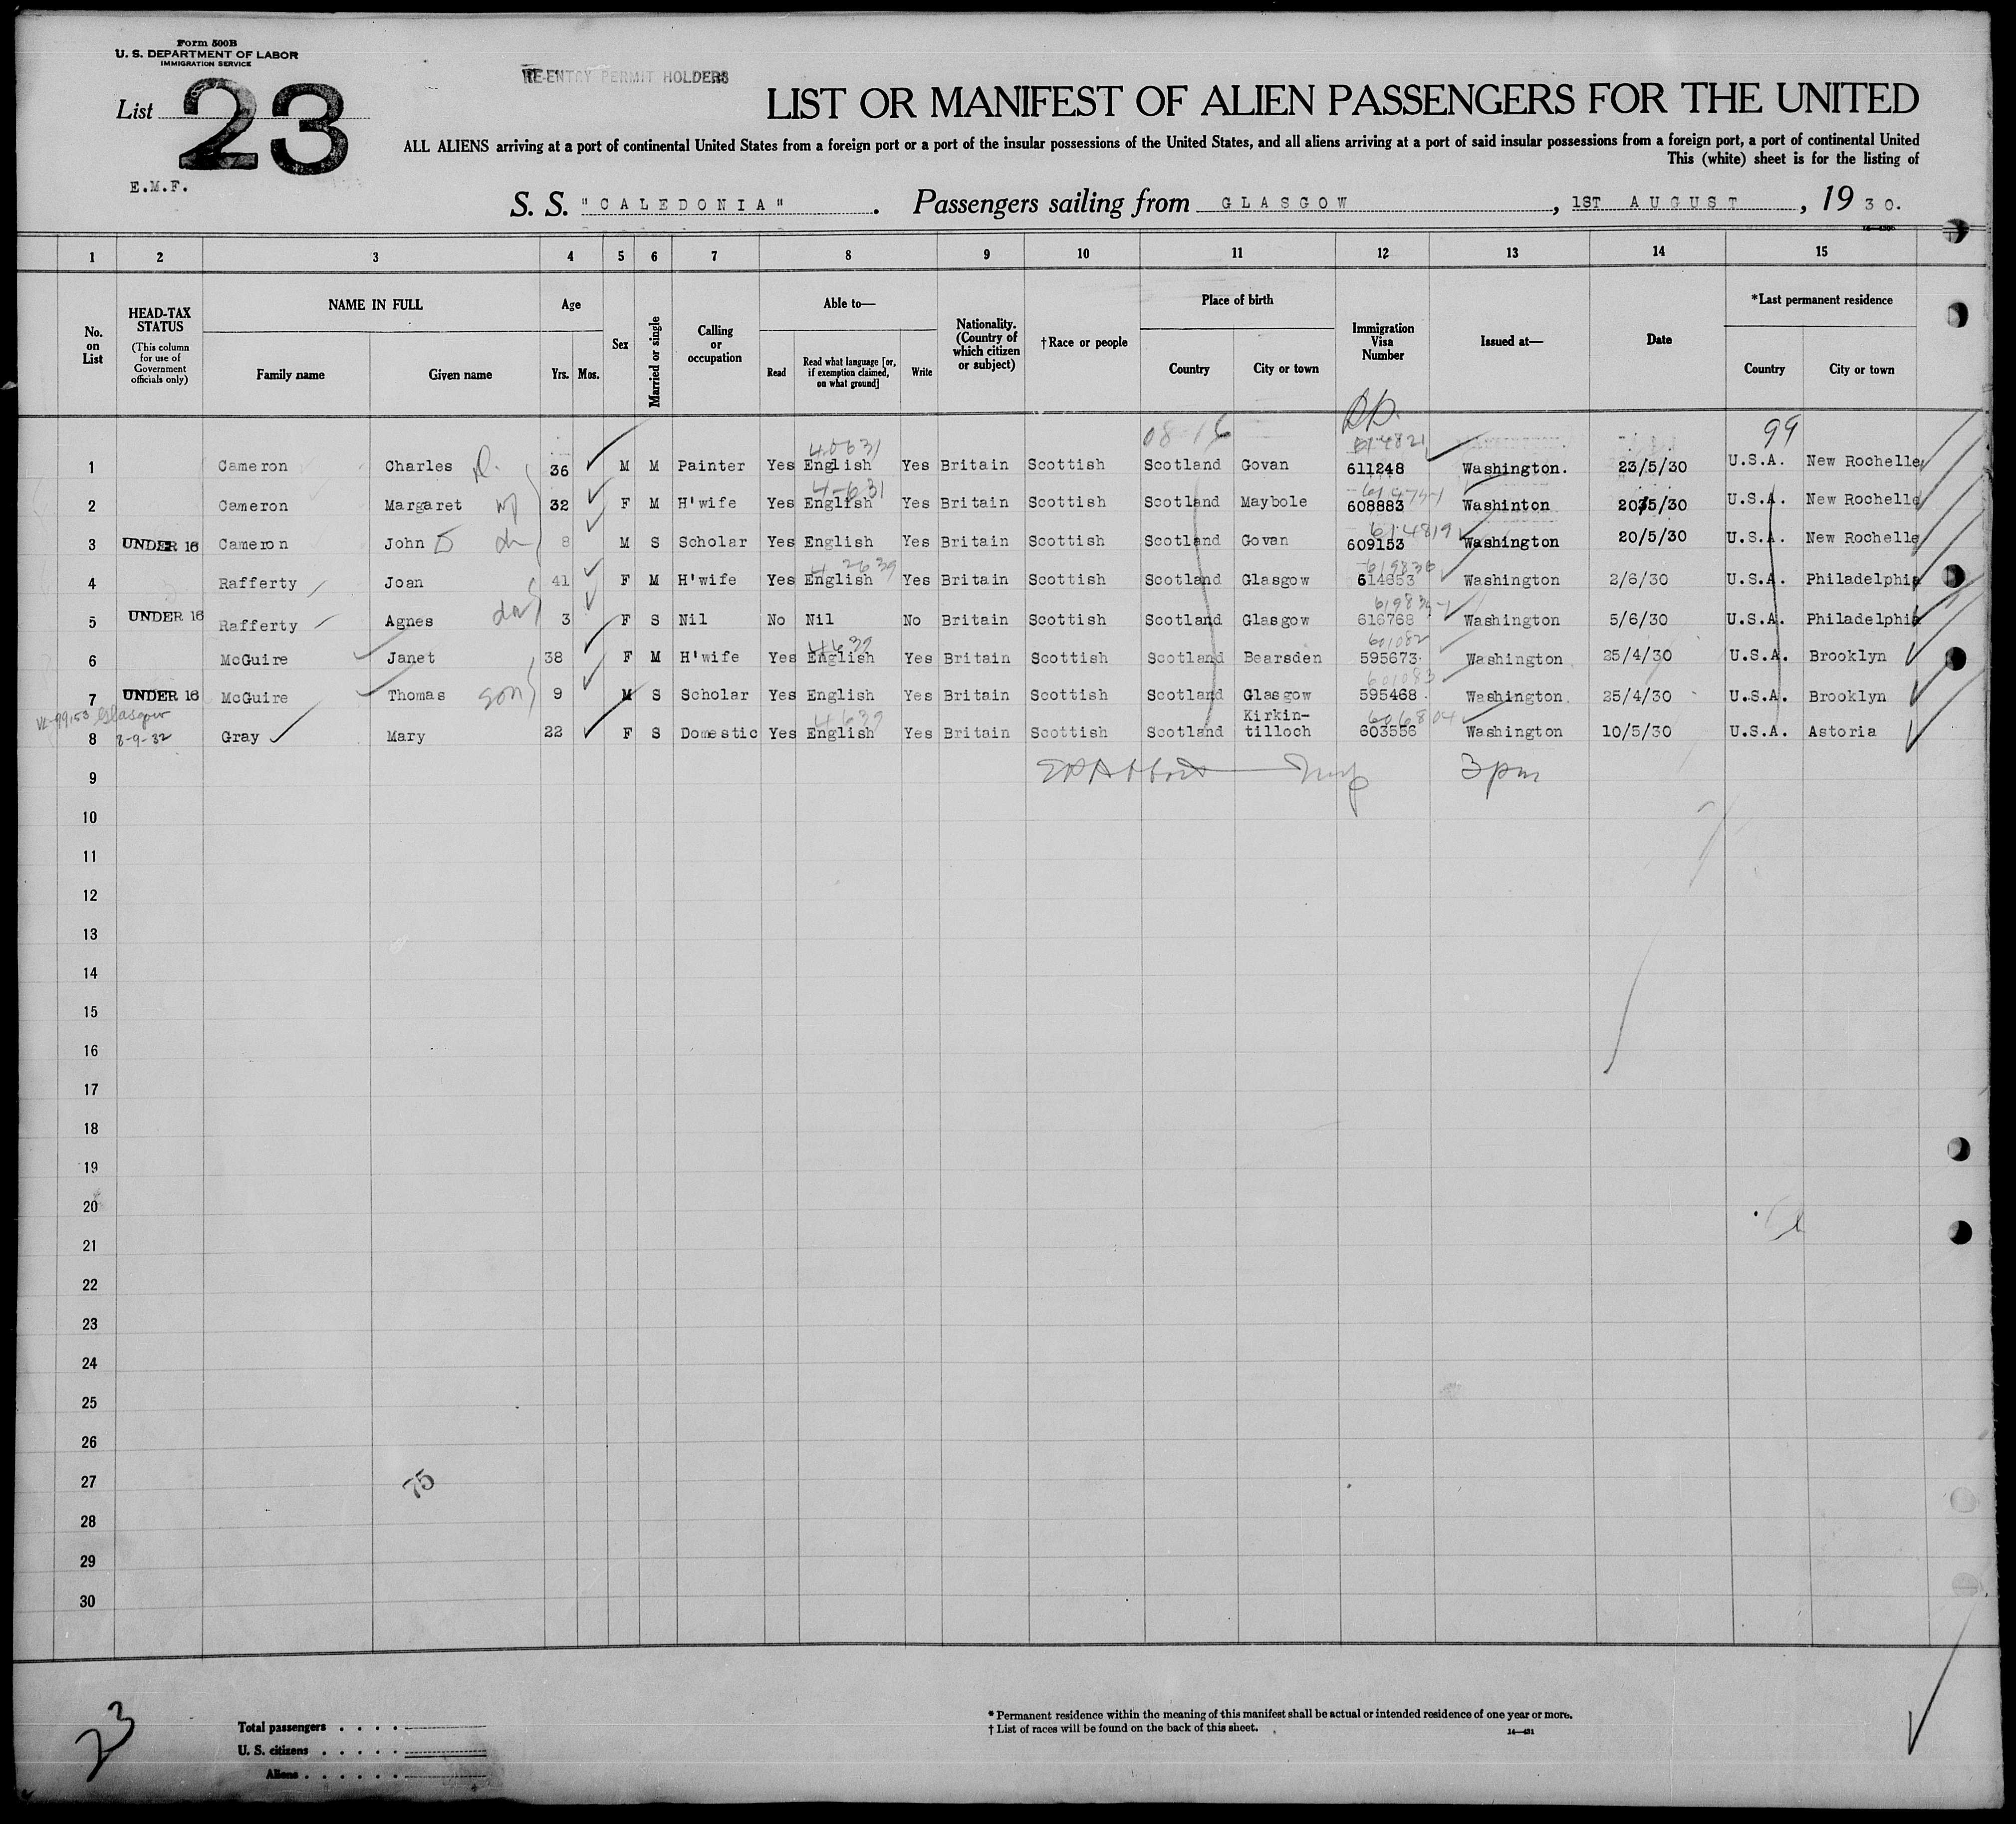 Form 500B
U. S. DEPARTMENT OF LABOR
IMMIGRATION SERVICE
RE-ENTRY PERMIT HOLDERS
List 23
LIST OR MANIFEST OF ALIEN PASSENGERS FOR THE UNITED
ALL ALIENS arriving at a port of continental United States from a foreign port or a port of the insular possessions of the United States, and all aliens arriving at a port of said insular possessions from a foreign port, a port of continental United
This (white) sheet is for the listing of
E.M.F.
S. S. "CALEDONIA". Passengers sailing from GLASGOW, 1ST AUGUST, 1930.
1 2 3 4 5 6 7 8 9 10 11 12 13 14 15
No. on List
HEAD-TAX STATUS
(This column for use of Government officials only)
NAME IN FULL
Family name Given name
Age
Yrs. Mos.
Sex
Married or single
Calling or occupation
Able to—
Read
Read what language [or, if exemption claimed, on what ground]
Write
Nationality. (Country of which citizen or subject)
†Race or people
Place of birth
Country City or town
Immigration Visa Number
Issued at—
Date
*Last permanent residence
Country City or town
08-16 99
40631 614821
1 Cameron Charles 36 M M Painter Yes English Yes Britain Scottish Scotland Govan 611248 Washington. 23/5/30 U.S.A. New Rochelle
4-631
2 Cameron Margaret wf 32 F M H'wife Yes English Yes Britain Scottish Scotland Maybole 608883 Washinton 20/5/30 U.S.A. New Rochelle
614819
3 UNDER 16 Cameron John 8 M S Scholar Yes English Yes Britain Scottish Scotland Govan 609153 Washington 20/5/30 U.S.A. New Rochelle
619836
4 Rafferty Joan 41 F M H'wife Yes English Yes Britain Scottish Scotland Glasgow 614653 Washington 2/6/30 U.S.A. Philadelphia
5 UNDER 16 Rafferty Agnes dau 3 F S Nil No Nil No Britain Scottish Scotland Glasgow 616768 Washington 5/6/30 U.S.A. Philadelphia
4639 601082
6 McGuire Janet 38 F M H'wife Yes English Yes Britain Scottish Scotland Bearsden 595673 Washington 25/4/30 U.S.A. Brooklyn
601083
7 UNDER 16 McGuire Thomas son 9 M S Scholar Yes English Yes Britain Scottish Scotland Glasgow 595468 Washington 25/4/30 U.S.A. Brooklyn
Glasgow 4639 606804
8 8-9-32 Gray Mary 22 F S Domestic Yes English Yes Britain Scottish Scotland Kirkin-tilloch 603556 Washington 10/5/30 U.S.A. Astoria
9 3 pm
10
11
12
13
14
15
16
17
18
19
20
21
22
23
24
25
26
27
75
28
29
30
23
Total passengers
U. S. citizens
Aliens
* Permanent residence within the meaning of this manifest shall be actual or intended residence of one year or more.
† List of races will be found on the back of this sheet.